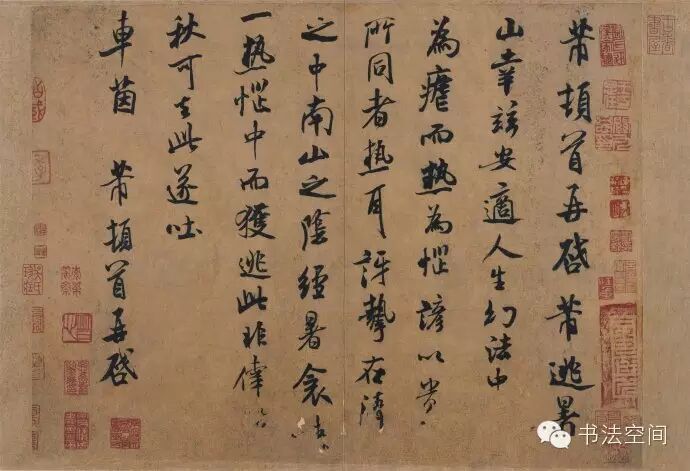 芾頓首再啟芾逃暑
山幸兹安適人生幻法中
為瘧而熱為惱諺以貴
所同者熱耳訝摯在清
之中南山之陰經暑衾
一熱惱中而獲逃此非倖
秋可去此遂吐
車茵 芾頓首再啟
书法空间